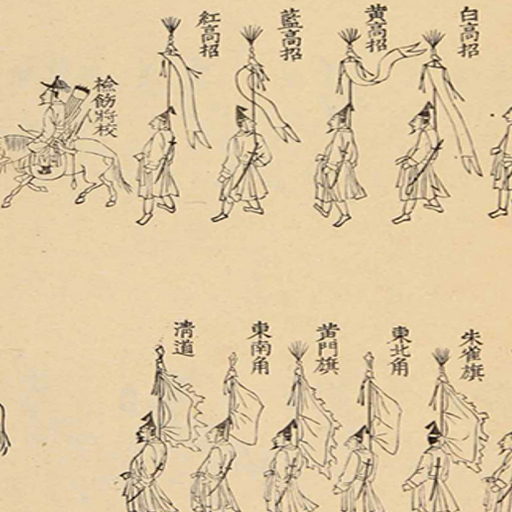 白高招
黃高招
藍高招
紅高招
檢飭將校
朱雀旗
東北角
黃門旗
東南角
淸道